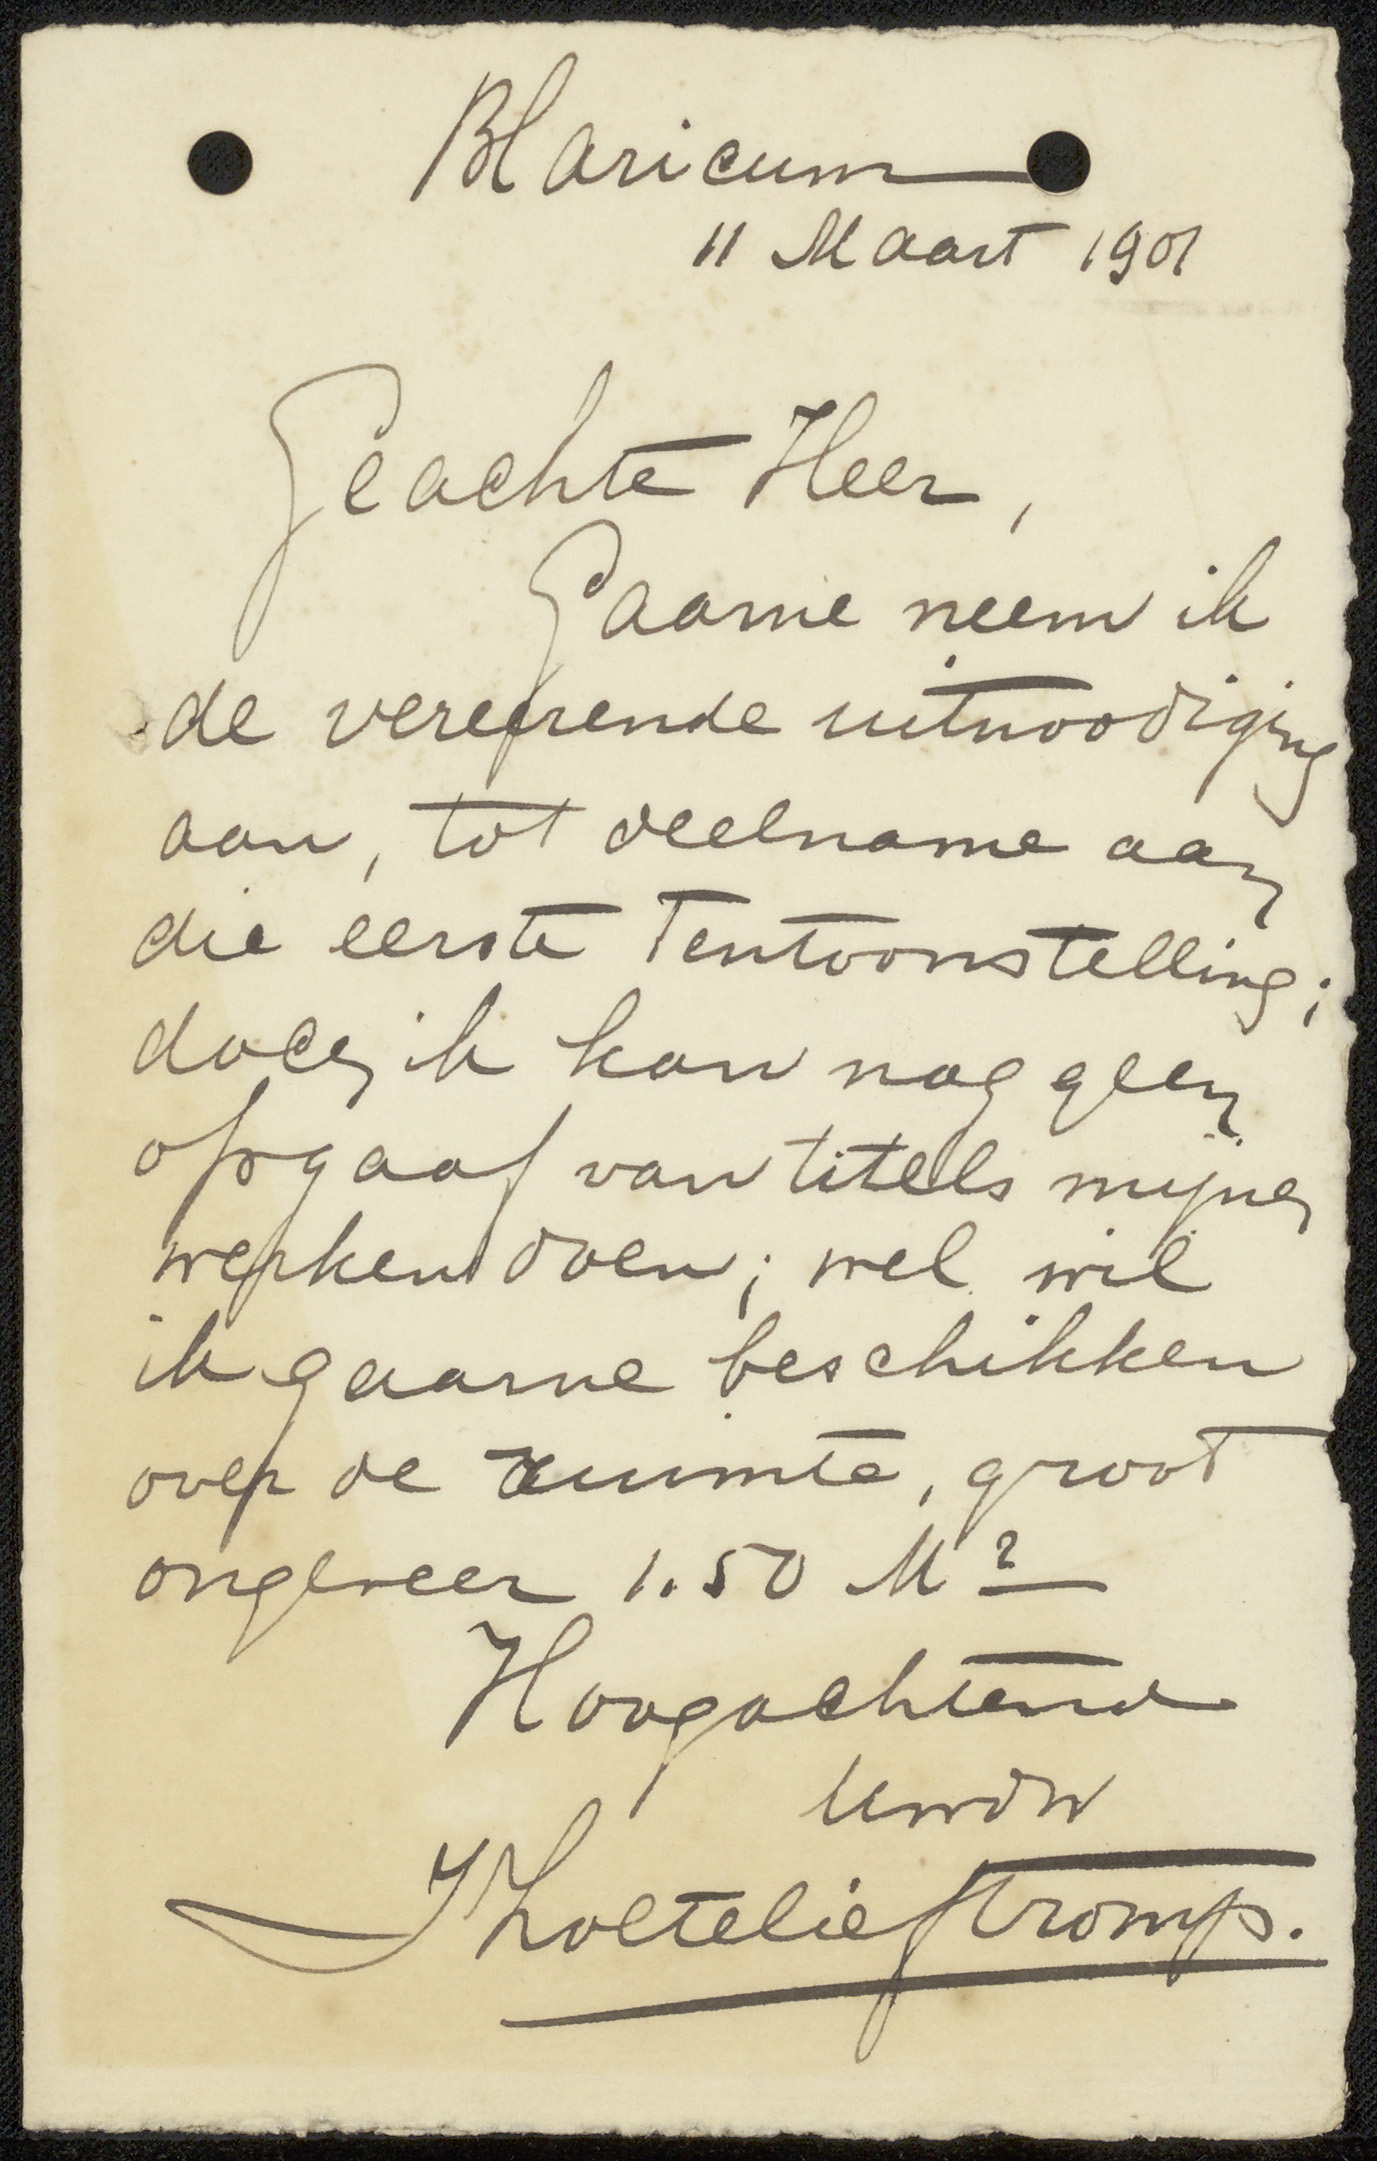 Blaricum
11 Maart 1901
Geachte Heer,
Gaarne neem ik
de vereerende uitnoodiging
aan, tot deelname aan
die eerste Tentoonstelling;
doch ik kan nog geen
opgaaf van titels mijner
werken doen; wel wil
ik gaarne beschikken
over de ruimte, groot
ongeveer 1.50 M²
Hoogachtend
UwDw
J Zoetelieftromp.